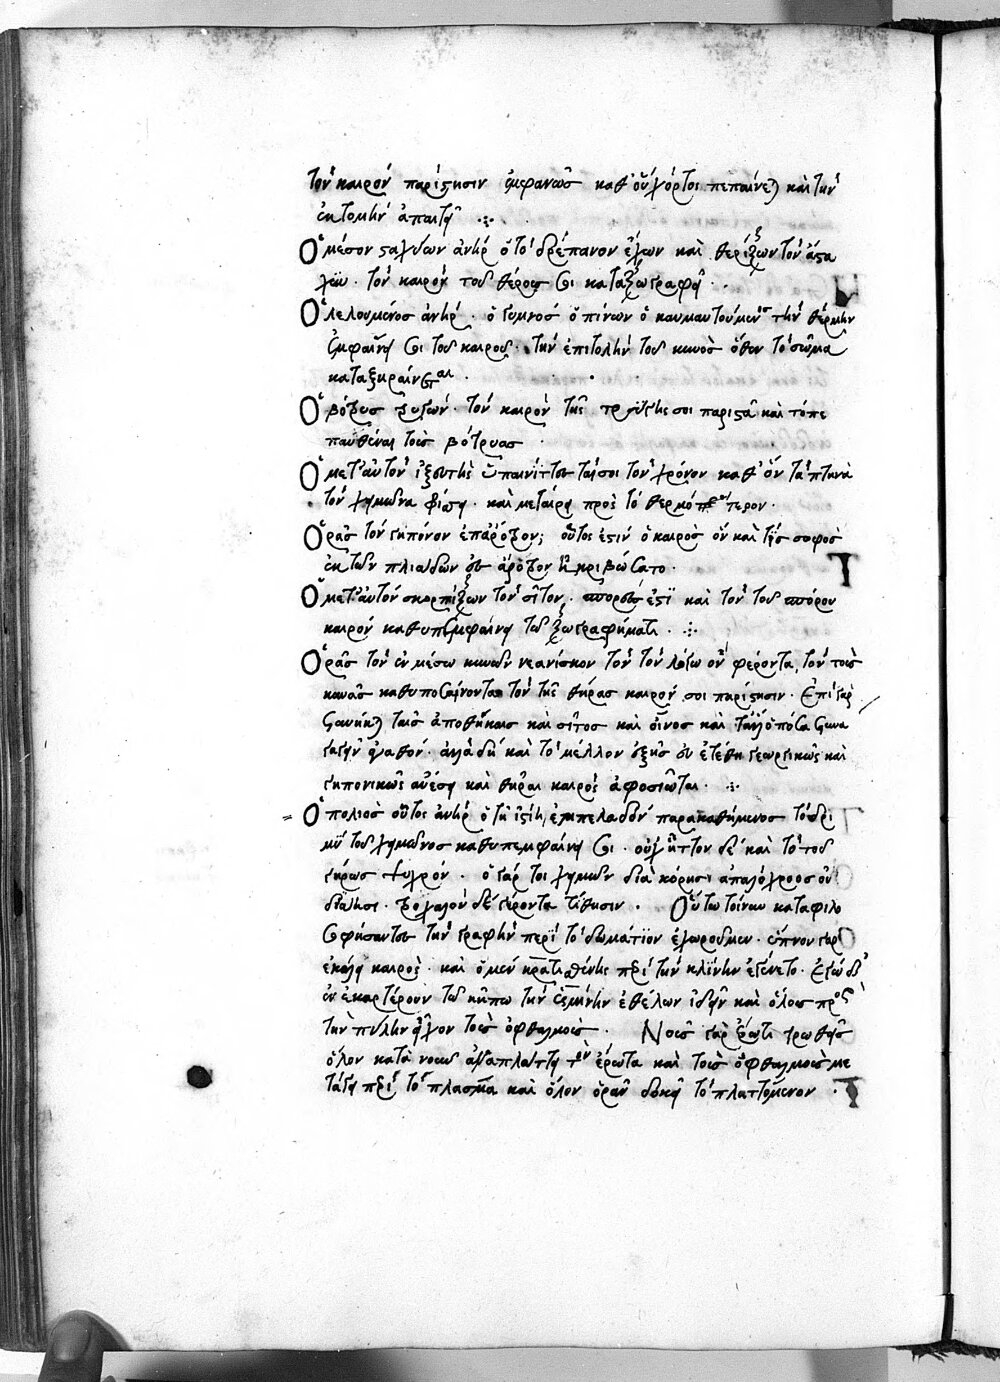 τὸν καιρὸν παρίστησιν ἐμφανῶς καθ' ὃν χόρτοι πεπαίνεται καὶ τὴν
ἐκτομὴν ἀπαιτεῖ
Ὁ μέσον σταχύων ἀνὴρ ὁ τὸ δρέπανον ἕλκων καὶ θερίζων τὸν ἄστα
χυν. τὸν καιρὸν τοῦ θέρους σοι καταζωγραφεῖ.
Ὁ λελουμένος ἀνὴρ. ὁ γυμνὸς ὁ πίνων ὁ καυματούμενος τὴν θέρμην
ἐμφαίνει σοι τοῦ καιροῦ. τὴν ἐπιτολὴν τοῦ κυνὸς ὅθεν τὸ σῶμα
καταξηραίνεται.
Ὁ βότρυς τρυγῶν. τὸν καιρὸν τῆς τρύγης σοι παριστᾷ καὶ τὸ πε
πανθῆναι τοὺς βότρυας
Ὁ μετ' αὐτὸν ἰξευτὴς ὑπαινίττεταί σοι τὸν χρόνον καθ' ὃν τὰ πτηνὰ
τὸν χειμῶνα φεύγει. καὶ μεταίρει πρὸς τὸ θερμότερον.
Ὁρᾷς τὸν γηπόνον ἐπ' ἀρότρον; οὗτός ἐστιν ὁ καιρὸς ὃν καὶ τις σοφὸς
ἐκ τῶν πλειάδων εἰς ἄροτρον ἠκριβώσατο.
Ὁ μετ' αὐτὸν σκορπίζων τὸν σῖτον, σπορεύς ἐστι καὶ τὸν τοῦ σπόρου
καιρὸν καθυπεμφαίνει τῷ ζωγραφήματι.
Ὁρᾷς τὸν ἐν μέσῳ κυνῶν νεανίσκον τὸν τὸν λαγωὸν φέροντα, τὸν τοὺς
κύνας καθυποσαίνοντα τὸν τῆς θήρας καιρόν σοι παρίστησιν. Ἐπεὶ γὰρ
συνῆκται ταῖς ἀποθήκαις καὶ σῖτος καὶ οἶνος καὶ τἆλλ' ὁπόσα συνα
γαγεῖν ἀγαθόν. ἀλλὰ δὴ καὶ τὸ μέλλον ἑξῆς εὖ ἐτέθη γεωργικῶς καὶ
γηπονικῶς ἀνέσει καὶ θήραι καιρὸς ἀφοσιῶται.
Ὁ πολιὸς οὗτος ἀνὴρ ὁ τῇ ἑστίᾳ ἐμπελαδὸν παρακαθήμενος τὸ δρι
μὺ τοῦ χειμῶνος καθυπεμφαίνει σοι. οὐχ ἧττον δὲ καὶ τὸ τοῦ
γήρως ψυχρόν. ὁ γάρ τοι χειμὼν διὰ κόρησι ἁπαλόχροος οὐ
διάησι. τροχαλὸν δὲ γέροντα τίθησιν. Οὕτω τοίνυν καταφιλο
σοφήσαντες τὴν γραφὴν περὶ τὸ δωμάτιον ἐχωροῦμεν. ὕπνου γὰρ
ἐκάλει καιρός. καὶ ὁ μὲν Κρατισθένης περὶ τὴν κλίνην ἐγένετο. Ἐγὼ δ'
ἐνεκαρτέρουν τῷ κήπῳ τὴν Ὑσμίνην ἐθέλων ἰδεῖν καὶ ὅλους πρὸς
τὴν πύλην εἶχον τοὺς ὀφθαλμούς. Νοῦς γὰρ ἔρωτι τρωθεὶς
ὅλον κατὰ νοῦν ἀναπλάττει τὸν ἔρωτα καὶ τοὺς ὀφθαλμοὺς με
τάγει περὶ τὸ πλάσμα καὶ ὅλον ὁρᾶν δοκεῖ τὸ πλαττόμενον.